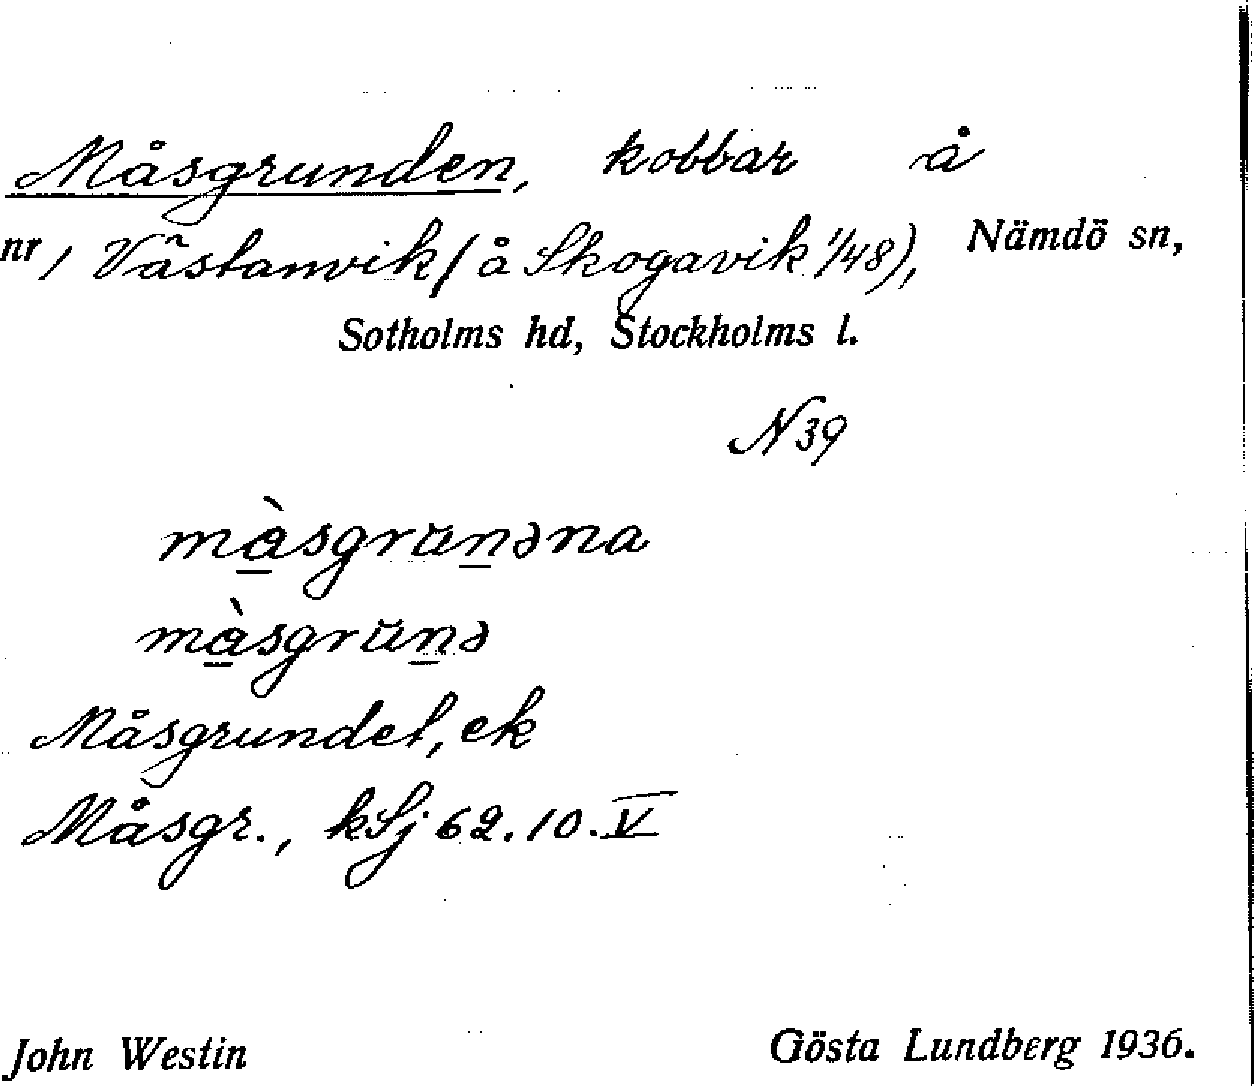 Måsgrunden, kobbar å
nr, Västanvik (å Skogavik 1/48), Nämdö sn,
Sotholms hd, Stockholms l.
N 39
mა̀sgrŭnəna
mა̀sgrŭnə
Måsgrundet, ek
Måsgr., kSj 62.10.V
John Westin
Gösta Lundberg 1936.